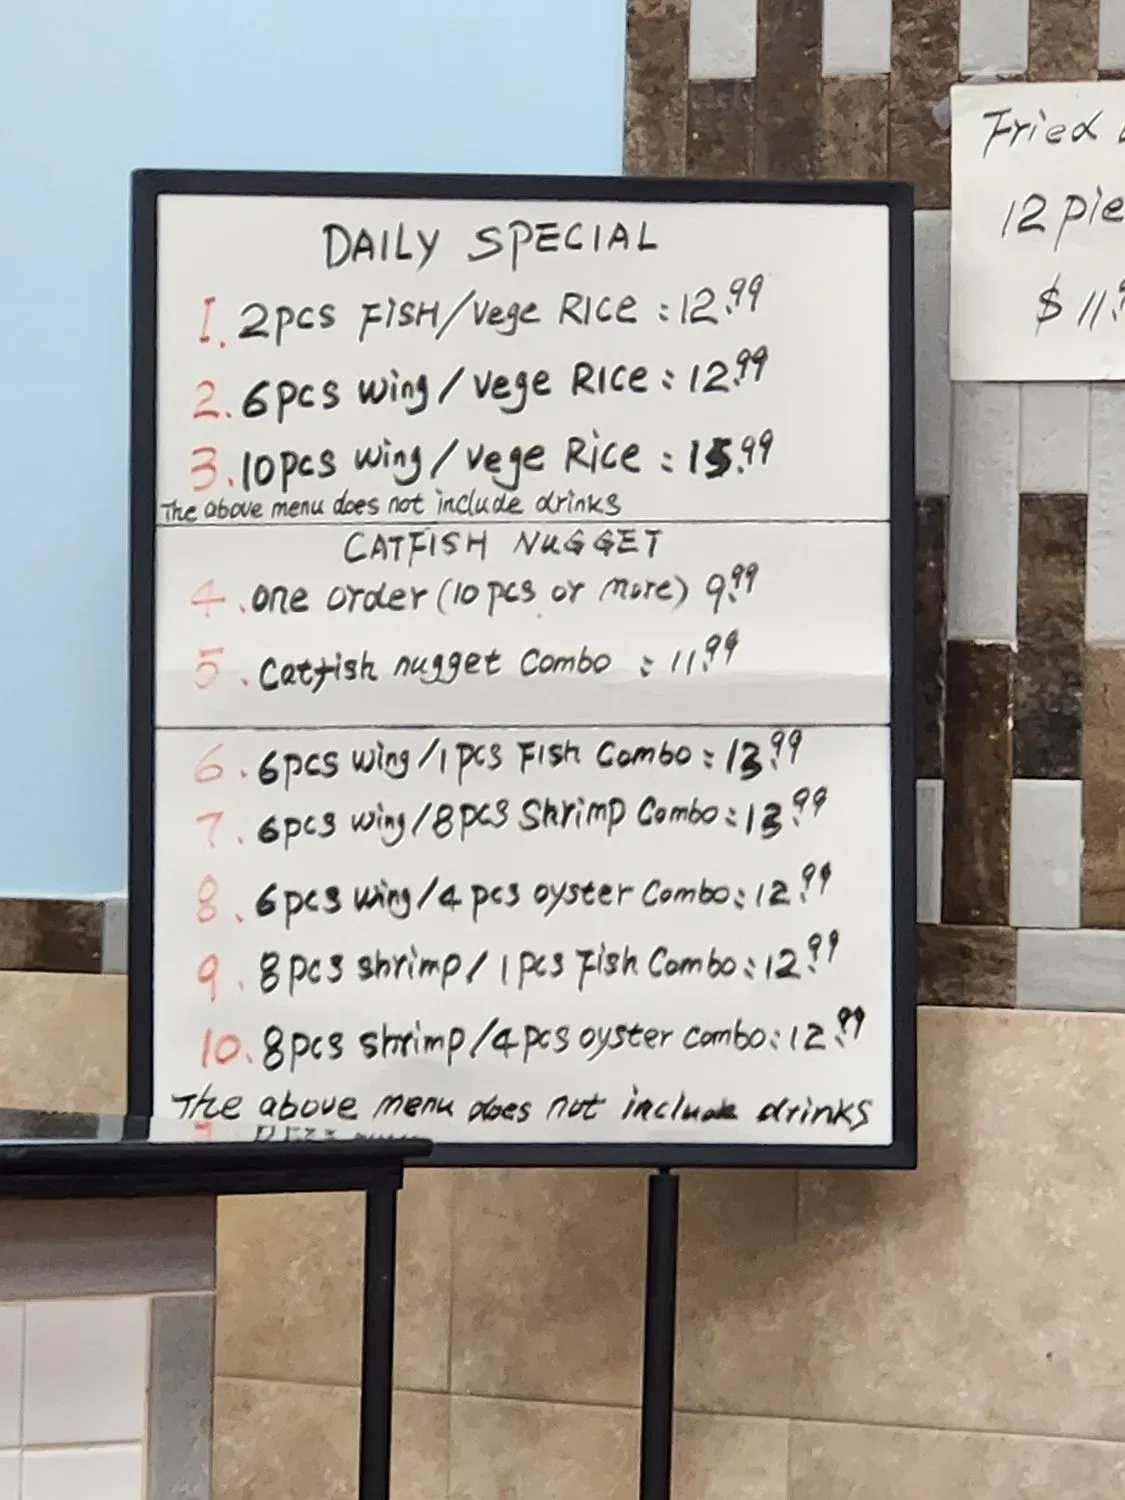 DAILY SPECIAL
1. 2pcs FISH/Vege RICE : 12.99
2. 6pcs wing/vege RICE : 12.99
3. 10pcs wing/vege Rice : 15.99
The above menu does not include drinks
CATFISH NUGGET
4. one order (10 pcs or more) 9.99
5. Catfish nugget Combo : 11.99
6. 6pcs wing/1pcs Fish Combo : 13.99
7. 6pcs wing/8pcs Shrimp Combo : 13.99
8. 6pcs wing/4 pcs oyster Combo : 12.99
9. 8pcs shrimp/1pcs Fish Combo : 12.99
10. 8pcs shrimp/4pcs oyster combo : 12.99
The above menu does not include drinks
Fried
12 pie
$ 11.9